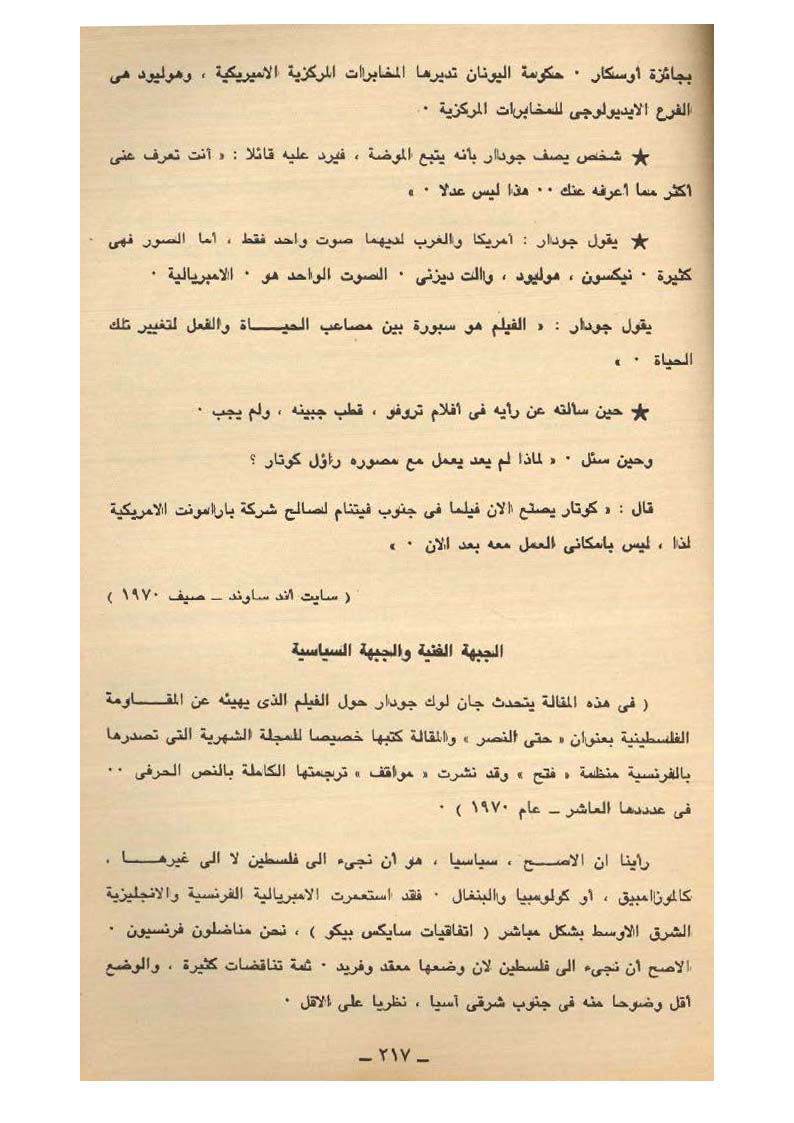 بجائزة أوسكار ٠ حكومة اليونان تديرها المخابرات المركزية الاميريكية ، وهوليود هى
الفرع الايديولوجى للمخابرات المركزية ٠
★ شخص يصف جودار بأنه يتبع الموضة ، فيرد عليه قائلا : « أنت تعرف عنى
أكثر مما أعرفه عنك ٠٠ هذا ليس عدلا ٠ »
★ يقول جودار : أمريكا والغرب لديهما صوت واحد فقط ، أما الصور فهى
كثيرة ٠ نيكسون ، هوليود ، والت ديزنى ٠ الصوت الواحد هو ٠ الامبريالية ٠
يقول جودار : « الفيلم هو سبورة بين مصاعب الحيـــاة والفعل لتغيير تلك
الحياة ٠ »
★ حين سألته عن رأيه فى أفلام تروفو ، قطب جبينه ، ولم يجب ٠
وحين سئل ٠ « لماذا لم يعد يعمل مع مصوره راؤل كوتار ؟
قال : « كوتار يصنع الان فيلما فى جنوب فيتنام لصالح شركة بارامونت الامريكية
لذا ، ليس بامكانى العمل معه بعد الان ٠ »
( سايت أند ساوند ــ صيف ١٩٧٠ )
الجبهة الفنية والجبهة السياسية
( فى هذه المقالة يتحدث جان لوك جودار حول الفيلم الذى يهيئه عن المقــاومة
الفلسطينية بعنوان « حتى النصر » والمقالة كتبها خصيصا للمجلة الشهرية التى تصدرها
بالفرنسية منظمة « فتح » وقد نشرت « مواقف » ترجمتها الكاملة بالنص الحرفى ٠٠
فى عدددها العاشر ــ عام ١٩٧٠ ) ٠
رأينا ان الاصـــح ، سياسيا ، هو أن نجىء الى فلسطين لا الى غيرهــا ،
كالموزامبيق ، أو كولومبيا والبنغال ٠ فقد استعمرت الامبريالية الفرنسية والانجليزية
الشرق الاوسط بشكل مباشر ( اتفاقيات سايكس بيكو ) ، نحن مناضلون فرنسيون ٠
الاصح أن نجىء الى فلسطين لان وضعها معقد وفريد ٠ ثمة تناقضات كثيرة ، والوضع
أقل وضوحا منه فى جنوب شرقى آسيا ، نظريا على الاقل ٠
ــ ٢١٧ ــ